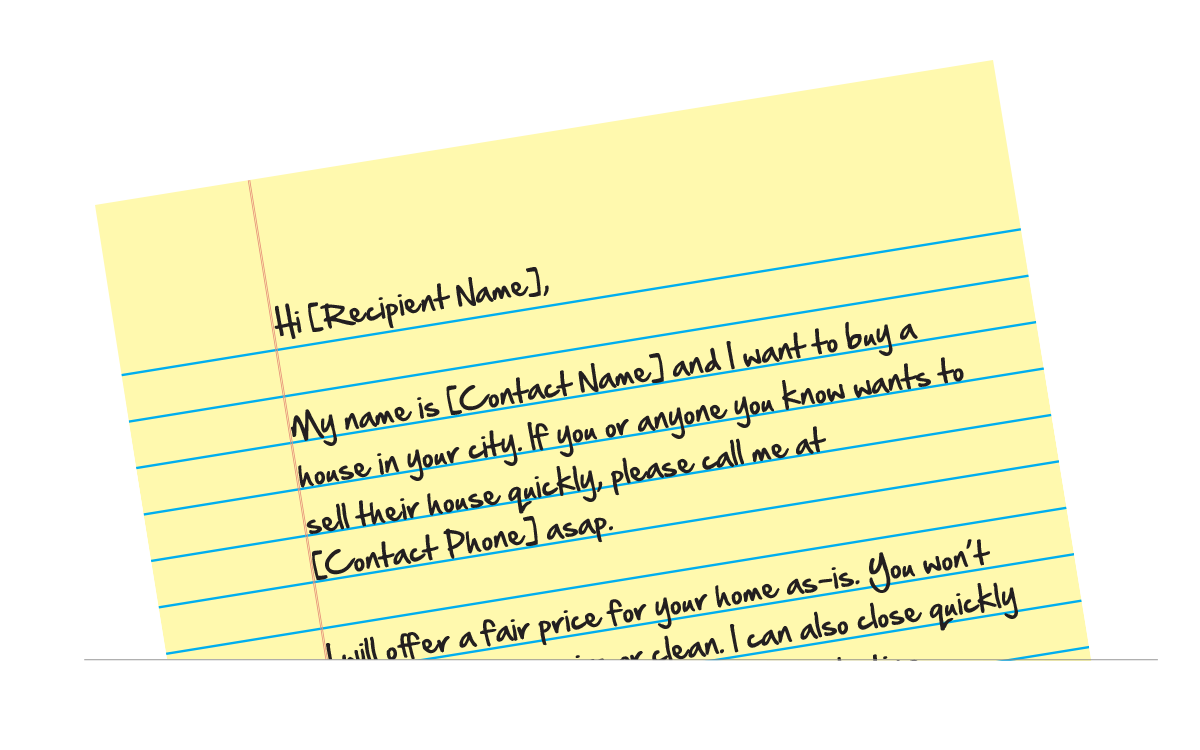 Hi [Recipient Name],
My name is [Contact Name] and I want to buy a
house in your city. If you or anyone you know wants to
sell their house quickly, please call me at
[Contact Phone] asap.
I will offer a fair price for your home as-is. You won't
or clean. I can also close quickly